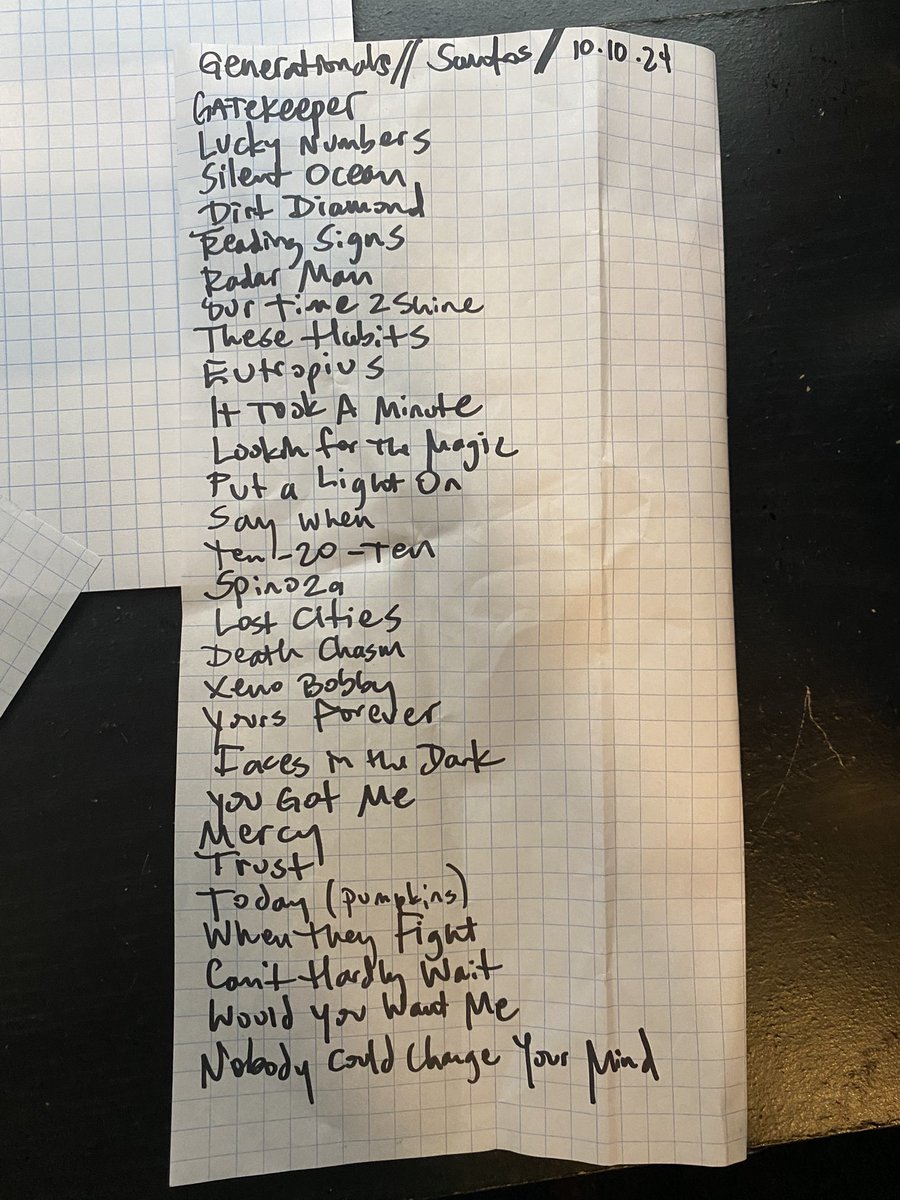 Generationals // Santos / 10.10.24
GATEKEEPER
Lucky Numbers
Silent Ocean
Dirt Diamond
Reading Signs
Radar Man
Our Time 2 Shine
These Habits
Eutropius
It Took A Minute
Lookin for the Magic
Put a Light On
Say When
Ten-20-Ten
Spinoza
Lost Cities
Death Chasm
Xeno Bobby
Yours Forever
Faces in the Dark
You Got Me
Mercy
Trust
Today (pumpkins)
When They Fight
Can't Hardly Wait
Would You Want Me
Nobody Could Change Your Mind